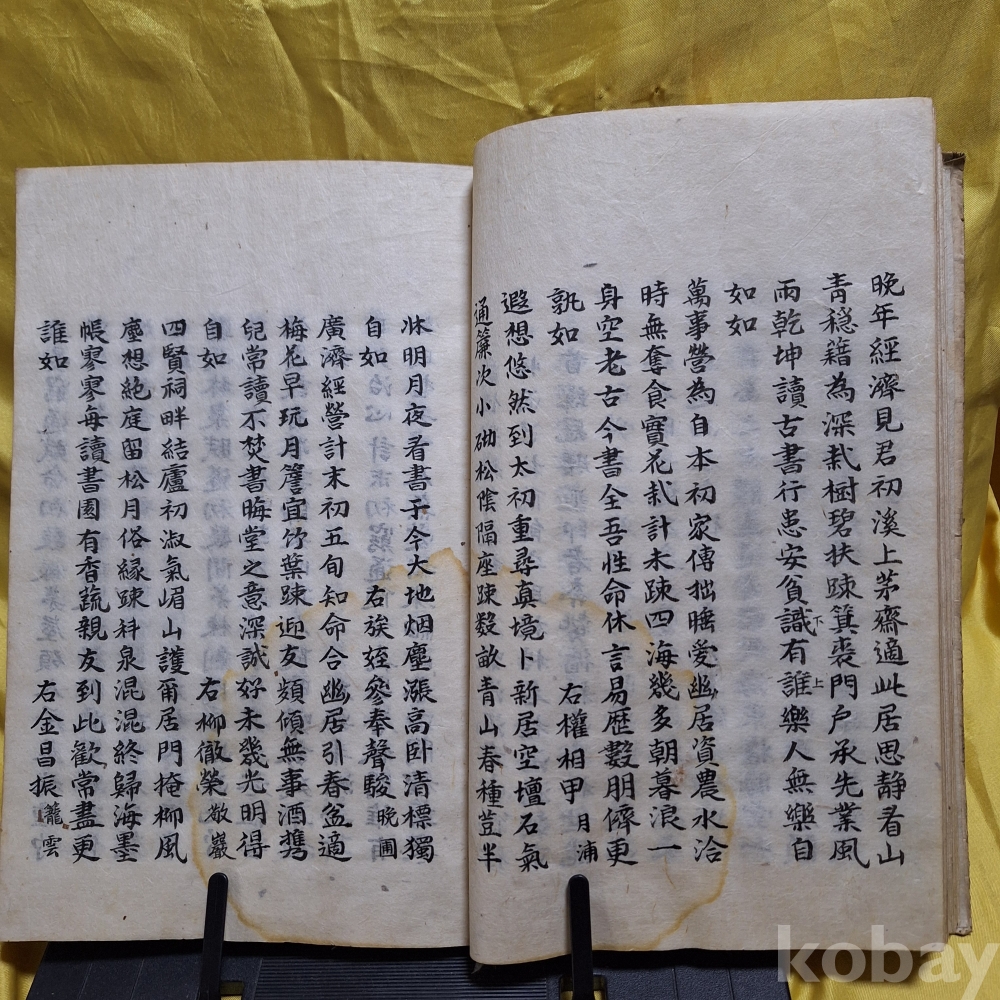 晚年經濟見君初溪上茅齋適此居思靜看山
青穩藉為深栽樹碧扶踈箕裘門戶承先業風
雨乾坤讀古書行患安貧識下有誰上樂人無樂自
如如
萬事營為自本初家傳拙睡愛幽居資農水洽
時無奪食寶花栽計未踈四海幾多朝暮浪一
身空老古今書全吾性命休言易歷數朋儕更
孰如 右權相甲 月浦
遐想悠然到太初重尋真境卜新居空壇石氣
通簾次小砌松陰隔座踈數畝青山春種荳半
牀明月夜看書于今大地烟塵漲高卧清標獨
自如 右族姪參奉聲駿 晚圃
廣濟經營計未初五旬知命合幽居引春盆適
梅花早玩月簷宜竹葉踈迎友頻傾無事酒携
兒常讀不焚書晦堂之意深誠好未幾光明得
自如 右柳徹榮 敬巖
四賢祠畔結廬初淑氣嵋山護甭居門掩柳風
塵想絶庭留松月俗緣踈科泉混混終歸海墨
帳寥寥每讀書園有香蔬親友到此歡常盡更
誰如 右金昌振 蘢雲
kobay